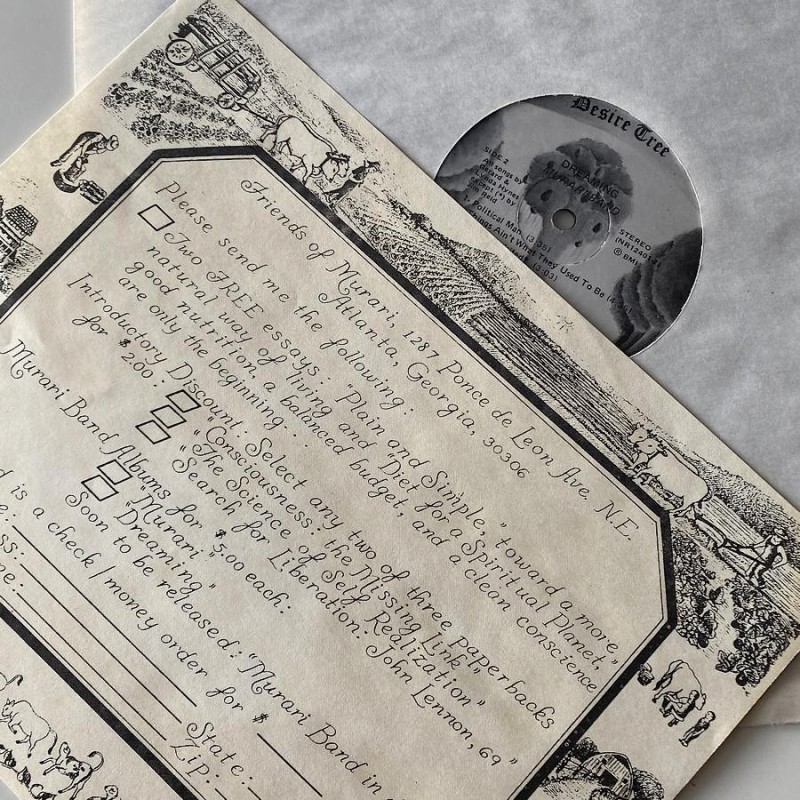 Desire Tree
SIDE 2
All songs by
Gerard &
Hynes
except (*) by
Reid
DREAMING
MURARI BAND
STEREO
ⓅBMI
1. Political Man (3:35)
Things Ain't What They Used To Be
Friends of Murari, 1287 Ponce de Leon Ave. N.E.
Atlanta, Georgia, 30306
Please send me the following:
Two FREE essays: "Plain and Simple," toward a more
natural way of living and "Diet for a Spiritual Planet,"
good nutrition, a balanced budget, and a clean conscience
are only the beginning...
Introductory Discount: Select any two of three paperbacks
for $2.00: "Consciousness: the Missing Link"
"The Science of Self Realization"
"Search for Liberation: John Lennon, 69"
Murari Band Albums for $5.00 each:
"Murari"
"Dreaming"
Soon to be released: "Murari Band in
is a check/money order for $
State:
Zip: